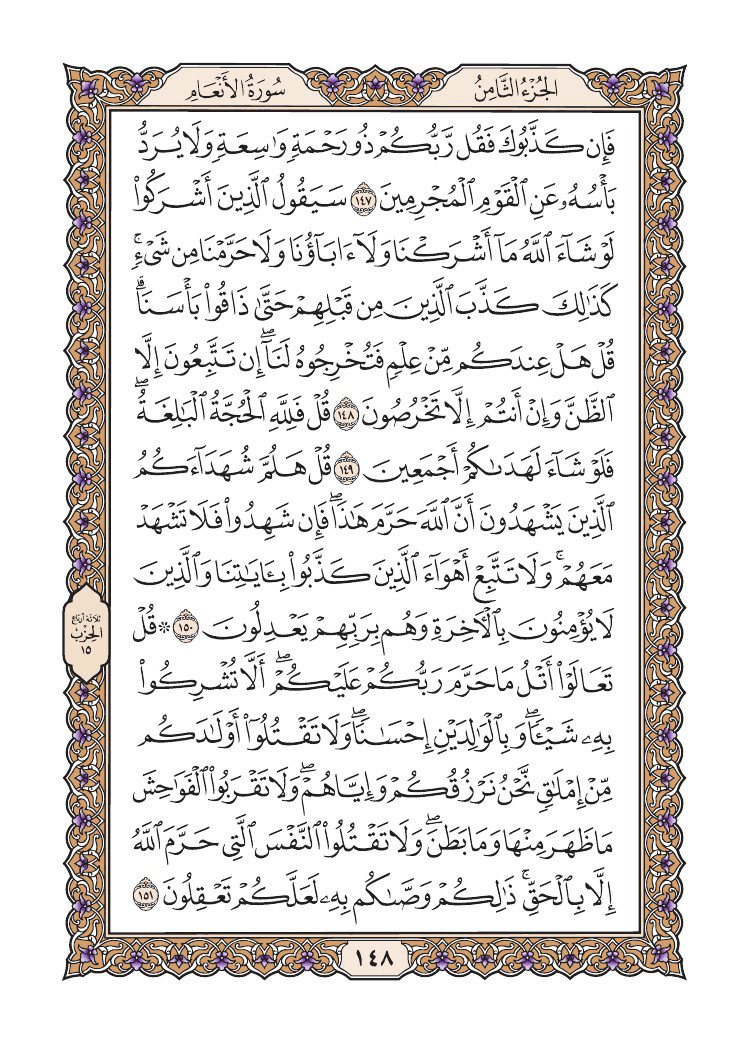 الجُزْءُ الثَّامِنُ
سُورَةُ الأَنْعَامِ
فَإِن كَذَّبُوكَ فَقُل رَّبُّكُمْ ذُو رَحْمَةٖ وَٰسِعَةٖ وَلَا يُرَدُّ
بَأْسُهُۥ عَنِ ٱلْقَوْمِ ٱلْمُجْرِمِينَ ١٤٧ سَيَقُولُ ٱلَّذِينَ أَشْرَكُوا۟
لَوْ شَآءَ ٱللَّهُ مَآ أَشْرَكْنَا وَلَآ ءَابَآؤُنَا وَلَا حَرَّمْنَا مِن شَىْءٖۚ
كَذَٰلِكَ كَذَّبَ ٱلَّذِينَ مِن قَبْلِهِمْ حَتَّىٰ ذَاقُوا۟ بَأْسَنَاۗ
قُلْ هَلْ عِندَكُم مِّنْ عِلْمٖ فَتُخْرِجُوهُ لَنَآۖ إِن تَتَّبِعُونَ إِلَّا
ٱلظَّنَّ وَإِنْ أَنتُمْ إِلَّا تَخْرُصُونَ ١٤٨ قُلْ فَلِلَّهِ ٱلْحُجَّةُ ٱلْبَٰلِغَةُۖ
فَلَوْ شَآءَ لَهَدَىٰكُمْ أَجْمَعِينَ ١٤٩ قُلْ هَلُمَّ شُهَدَآءَكُمُ
ٱلَّذِينَ يَشْهَدُونَ أَنَّ ٱللَّهَ حَرَّمَ هَٰذَاۖ فَإِن شَهِدُوا۟ فَلَا تَشْهَدْ
مَعَهُمْۚ وَلَا تَتَّبِعْ أَهْوَآءَ ٱلَّذِينَ كَذَّبُوا۟ بِـَٔايَٰتِنَا وَٱلَّذِينَ
لَا يُؤْمِنُونَ بِٱلْـَٔاخِرَةِ وَهُم بِرَبِّهِمْ يَعْدِلُونَ ١٥٠ ۞ قُلْ
تَعَالَوْا۟ أَتْلُ مَا حَرَّمَ رَبُّكُمْ عَلَيْكُمْۖ أَلَّا تُشْرِكُوا۟
بِهِۦ شَيْـٔٗاۖ وَبِٱلْوَٰلِدَيْنِ إِحْسَٰنٗاۖ وَلَا تَقْتُلُوٓا۟ أَوْلَٰدَكُم
مِّنْ إِمْلَٰقٖ نَّحْنُ نَرْزُقُكُمْ وَإِيَّاهُمْۖ وَلَا تَقْرَبُوا۟ ٱلْفَوَٰحِشَ
مَا ظَهَرَ مِنْهَا وَمَا بَطَنَۖ وَلَا تَقْتُلُوا۟ ٱلنَّفْسَ ٱلَّتِى حَرَّمَ ٱللَّهُ
إِلَّا بِٱلْحَقِّۚ ذَٰلِكُمْ وَصَّىٰكُم بِهِۦ لَعَلَّكُمْ تَعْقِلُونَ ١٥١
ثلاثة أرباع
الحزب
١٥
١٤٨